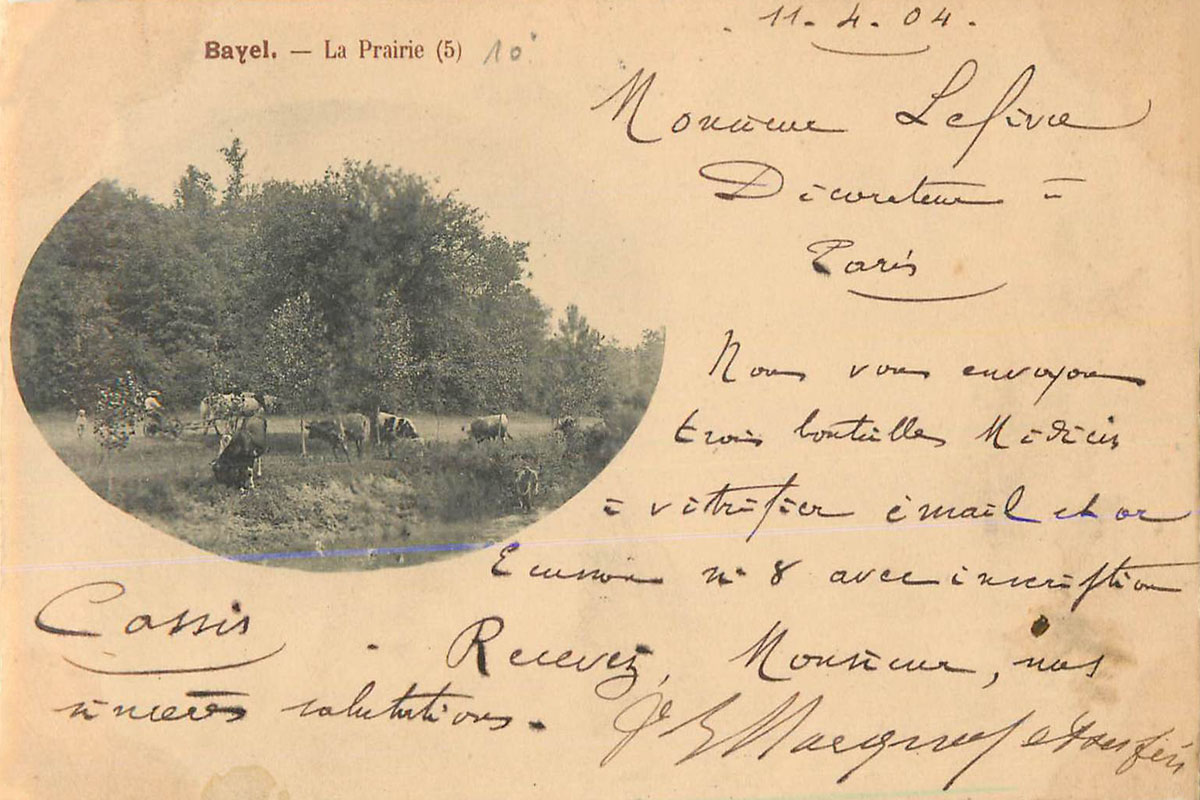 Bayel. — La Prairie (5) 10
11. 4. 04.
Monsieur Lefèvre
Décorateur =
Paris
Nous vous envoyons
trois bouteilles Médicis
à vitrifier émail et or
Ecusson n° 8 avec inscription
Cassis. Recevez, Monsieur, nos
sincères salutations.